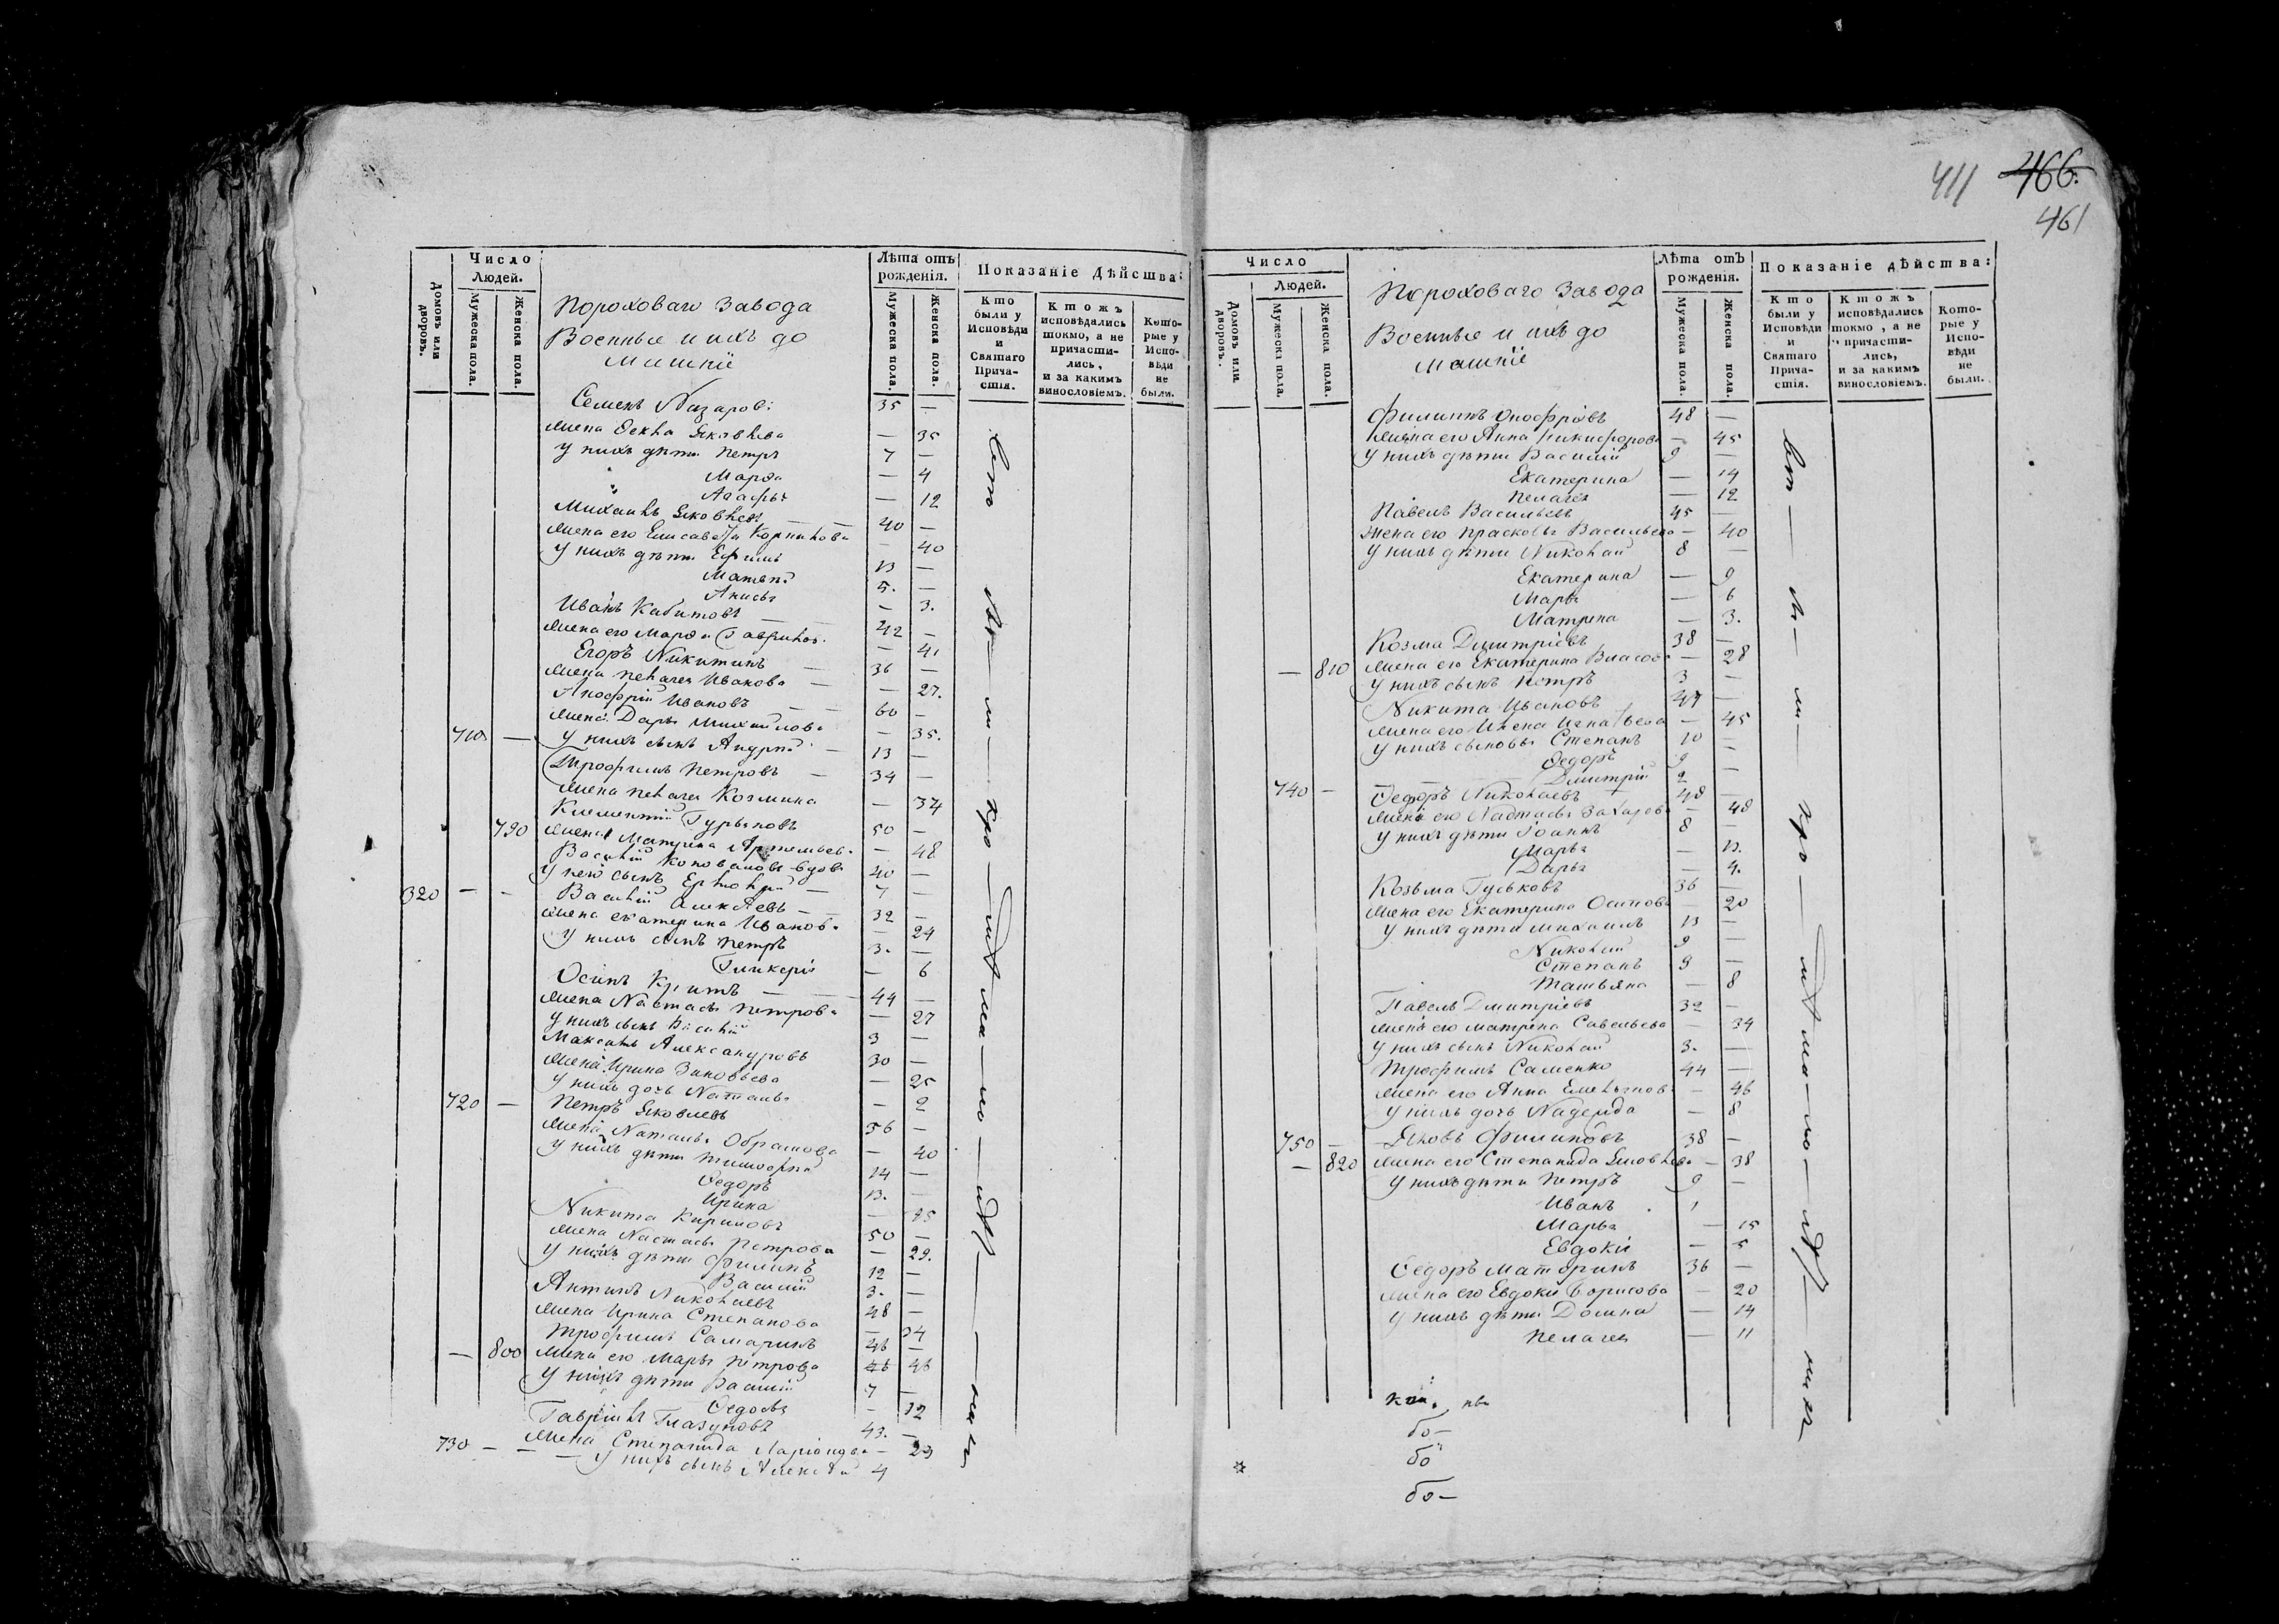 411 466.
461
Число
Людей.
Домовъ или дворовъ.
Мужеска пола.
Женска пола.
Пороховаго Завода
Военные и ихъ до
машніе
Лѣта отъ рожденія.
Мужеска пола.
Женска пола.
Показаніе дѣйства:
Кто были у Исповѣди и Святаго Причастія.
Ктожъ исповѣдались токмо, а не причастились, и за какимъ винословіемъ.
Которые у Исповѣди не были.
Семенъ Назаров 35 —
жена Яковлева — 35
у нихъ дѣти Петръ 7 —
Марѳа — 4
Агафья — 12
Михаилъ Яковлевъ 40 —
жена его Елисавета Корнилова — 40
у нихъ дѣти Ефимъ 13 —
Матвѣй 5. —
Анисья — 3.
Иванъ 42 —
жена его Марѳа Гаврилов. — 41
Егоръ Никитинъ 36 —
жена Пелагея Иванова — 27.
Анофрій Ивановъ 60 —
жена Дарья Михайлова — 35.
710 — у нихъ сынъ Андрей 13 —
Трофимъ Петровъ 34 —
жена Пелагея Козмина — 34
Климентій Гурьяновъ 50 —
790 жена Матрена Артемьев. — 48
Василій Коновалов вдов 40 —
у него сынъ 7 —
320 — — Василій Алексѣевъ 32 —
жена Екатерина Иванов. — 24
у нихъ сынъ Петръ 3. —
Гликерія — 6
Осипъ 44 —
жена Настасья Петрова — 27
у нихъ сынъ Василій 3 —
Максимъ Александровъ 30 —
жена Ирина Зиновьева — 25
у нихъ дочь Наталья — 2
720 — Петръ Яковлевъ 56 —
жена Наталья Обрамова — 40
у нихъ дѣти Тимофей 14 —
Ѳедоръ 13. —
Ирина —
Никита Кириловъ 50 —
жена Настасья Петрова — 29.
у нихъ дѣти Филипъ 12 —
Василій 3. —
Антипъ Николаевъ 48 —
жена Ирина Степанова — 34
Трофимъ Самаринъ 46 —
— 800 жена его Марья Петрова 46 46
у нихъ дѣти Василій 7 —
Ѳедосья — 12
Гаврилъ Глазуновъ 43. —
жена Степанида Ларіонова — 29
730 — — — у нихъ сынъ Алексѣй 4
Число
Людей.
Домовъ или дворовъ.
Мужеска пола.
Женска пола.
Пороховаго Завода
Военные и ихъ до
машніе
Лѣта отъ рожденія.
Мужеска пола.
Женска пола.
Показаніе дѣйства:
Кто были у Исповѣди и Святаго Причастія.
Ктожъ исповѣдались токмо, а не причастились, и за какимъ винословіемъ.
Которые у Исповѣди не были.
Филиппъ Онофріевъ 48 —
жена его Анна Никифорова — 45
у нихъ дѣти Василій 9 —
Екатерина — 14
Пелагея — 12
Павелъ Васильевъ 45 —
жена его Прасковья Васильева — 40
у нихъ дѣти Николай 8 —
Екатерина — 9
Марья — 6
Матрена — 3.
Козма Дмитріевъ 38 —
— 810 жена его Екатерина Власов — 28
у нихъ сынъ Петръ 3 —
Никита Ивановъ 47 —
жена его Игнатьева — 45
у нихъ сыновья Степанъ 10 —
Ѳедоръ 9 —
Дмитрій 2 —
740 — Ѳедоръ Николаевъ 48 —
жена его Настасья Захарова — 48
у нихъ дѣти Іоаннъ 8 —
Марья — 13.
Дарья — 4.
Козьма Гуськовъ 36 —
жена его Екатерина Осипова — 20
у нихъ дѣти Михаилъ 13 —
Николай 9 —
Степанъ 9 —
Татьяна — 8
Павелъ Дмитріевъ 32 —
жена его Матрена Савельева — 34
у нихъ сынъ Николай 3. —
Трофимъ Саменко 44 —
жена его Анна Емельянов — 46
у нихъ дочь Надежда — 8
750 — Яковъ Филиповъ 38 —
— 820 жена его Степанида Яковлева — 38
у нихъ дѣти Петръ 9 —
Иванъ 1
Марья — 15
Евдокія — 5
Ѳедоръ Маторинъ 36 —
жена его Евдокія Борисова — 20
у нихъ дѣти Домна — 14
Пелагея — 11
бо—
бо
бо—